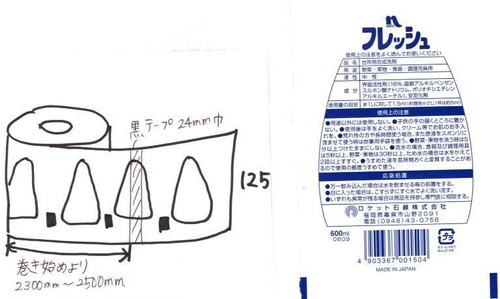 黒テープ24mm巾
125
巻き始めより
2300mm～2500mm
n
フレッシュ
使用上の注意をよく読んでお使いください
品名 台所用合成洗剤
用途 野菜・果物・食器・調理用具用
液性 中性
成分 界面活性剤(16%、直鎖アルキルベンゼン
スルホン酸ナトリウム、ポリオキシエチレン
アルキルエーテル)、安定化剤
使用量の目安 水1Lに対して1.5ml(料理用小さじ1杯は約5ml)
使用上の注意
●用途以外には使用しない。●子供の手の届くところに置か
ない。●使用後は手をよく洗い、クリーム等でお肌のお手入
れを。●荒れ性の方や長時間使う場合、また原液をスポンジに
含ませて使う時は炊事用手袋を使う。●野菜・果物を洗う時は5
分以上つけたままにしない。●流水の場合、食器及び調理用具
は5秒以上、野菜・果物は30秒以上、ため水の場合は水をかえて
2回以上すすぐ。●うすめた液を長時間おくと変質することがあ
るので使用の都度うすめて使う。
応急処置
●万一飲み込んだ場合は水を飲ませる等の処置をする。
●目に入った場合は、こすらずにすぐ水でよく洗い流す。
●いずれも異常が残る場合は商品を持参し専門医に相談する。
ロケット石鹸株式会社
福岡県嘉麻市山野2091
電話 (0948)43-0756
600ml
0609
4903367001504
MADE IN JAPAN